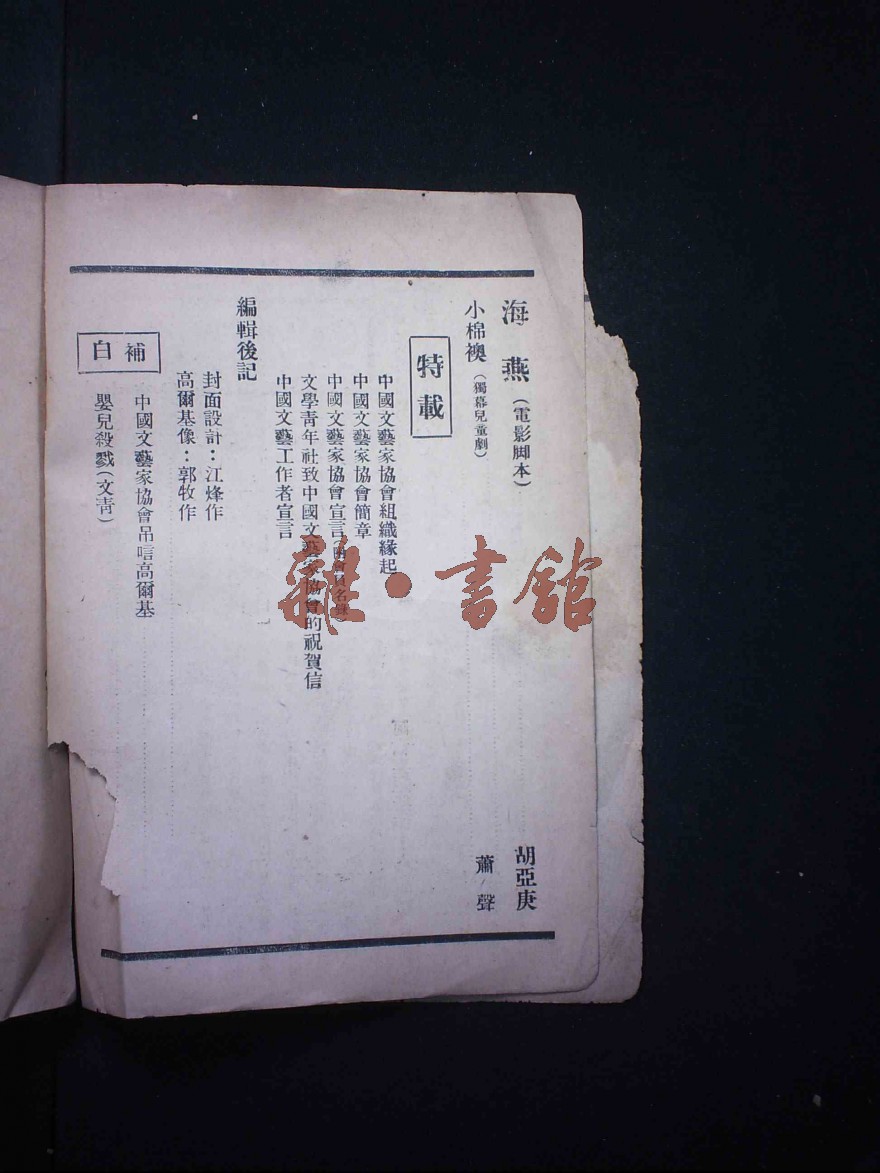 海燕（電影脚本） 胡亞庚
小棉襖（獨幕兒童劇） 蕭聲
特載
中國文藝家協會組織緣起
中國文藝家協會簡章
中國文藝家協會宣言（附會員名錄）
文學青年社致中國文藝家協會的祝賀信
中國文藝工作者宣言
編輯後記
封面設計：江烽作
高爾基像：郭牧作
補白
中國文藝家協會吊唁高爾基
嬰兒殺戮（文青）
雜·書館